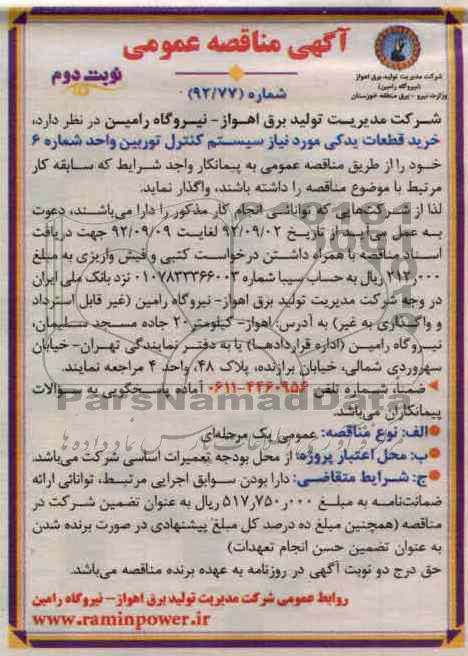 آگهی مناقصه عمومی
شرکت مدیریت تولید برق اهواز
(نیروگاه رامین)
وزارت نیرو - برق منطقه خوزستان
نوبت دوم
شماره (۹۲/۷۷)
شرکت مدیریت تولید برق اهواز- نیروگاه رامین در نظر دارد،
خرید قطعات یدکی مورد نیاز سیستم کنترل توربین واحد شماره ۶
خود را از طریق مناقصه عمومی به پیمانکار واجد شرایط که سابقه کار
مرتبط با موضوع مناقصه را داشته باشند، واگذار نماید.
لذا از شرکت‌هایی که توانائی انجام کار مذکور را دارا می‌باشند، دعوت
به عمل می‌آید از تاریخ ۹۲/۰۹/۰۲ لغایت ۹۲/۰۹/۰۹ جهت دریافت
اسناد مناقصه با همراه داشتن درخواست کتبی و فیش واریزی به مبلغ
۲۱۲٫۰۰۰ ریال به حساب سیبا شماره ۰۱۰۷۸۳۳۳۶۶۰۰۳ نزد بانک ملی ایران
در وجه شرکت مدیریت تولید برق اهواز- نیروگاه رامین (غیر قابل استرداد
و واگذاری به غیر) به آدرس: اهواز- کیلومتر ۲۰ جاده مسجد سلیمان،
نیروگاه رامین (اداره قراردادها) یا به دفتر نمایندگی تهران- خیابان
سهروردی شمالی، خیابان برازنده، پلاک ۴۸، واحد ۴ مراجعه نمایند.
ضمناً، شماره تلفن ۴۴۶۰۹۵۶-۰۶۱۱ آماده پاسخگویی به سوالات
پیمانکاران می‌باشد.
الف: نوع مناقصه: عمومی یک مرحله‌ای
ب: محل اعتبار پروژه: از محل بودجه تعمیرات اساسی شرکت می‌باشد.
ج: شرایط متقاضی: دارا بودن سوابق اجرایی مرتبط، توانائی ارائه
ضمانت‌نامه به مبلغ ۵۱۷٫۷۵۰٫۰۰۰ ریال به عنوان تضمین شرکت در
مناقصه (همچنین مبلغ ده درصد کل مبلغ پیشنهادی در صورت برنده شدن
به عنوان تضمین حسن انجام تعهدات)
حق درج دو نوبت آگهی در روزنامه به عهده برنده مناقصه می‌باشد.
روابط عمومی شرکت مدیریت تولید برق اهواز- نیروگاه رامین
www.raminpower.ir
ParsNamadData